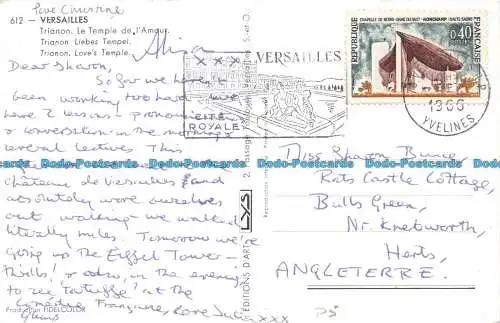 Love Christine
612 - VERSAILLES
Trianon. Le Temple de l'Amour.
Trianon Liebes Tempel.
Trianon. Love's Temple.
Alison
Dear Sharon,
So far we haven't
been working too hard - we
have 2 lessons - pronunciation
& conversation in the mornings &
several lectures This
château de Versailles & and
absolutely wore ourselves
out walking - we walked
literally miles. Tomorrow we're
going up the Eiffel Tower -
thrills! & also, in the evening
to see 'Tartuffe' at the
Comédie Française, Love Julia xxx
Production FIDELCOLOR
VERSAILLES
CITÉ
ROYALE
2. Passage
EDITIONS D'ART LYS
CHAPELLE DE NOTRE-DAME DU HAUT - RONCHAMP (HAUTE-SAÔNE)
REPUBLIQUE FRANÇAISE
0,40
POSTES
1966
YVELINES
Miss Sharon
Rats Castle Cottage,
Bulls Green,
Nr. Knebworth,
Herts,
ANGLETERRE.
Bodo-Postcards